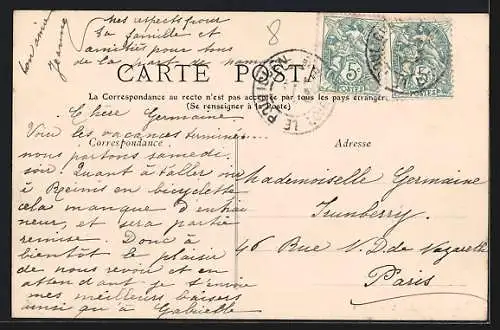 mes respects pour
ta famille et
amitiés pour tous
de la part de mam
ton amie
Jeanne
8
5c
POSTES
5c
POSTES
CARTE POSTALE
La Correspondance au recto n'est pas acceptée par tous les pays étrangers
(Se renseigner à la Poste)
Correspondance
Adresse
Chère Germaine
Voici les vacances terminées
nous partons samedi
soir Quant à t'aller
à Reims en bicyclette
cela manque d'entraî
neur, et sera partie
remise. Donc à
bientôt le plaisir
de nous revoir et en
attendant je t'envoie
mes meilleurs baisers
ainsi qu'à Gabrielle
Mademoiselle Germaine
46 Rue N.D. de Nazareth
Paris